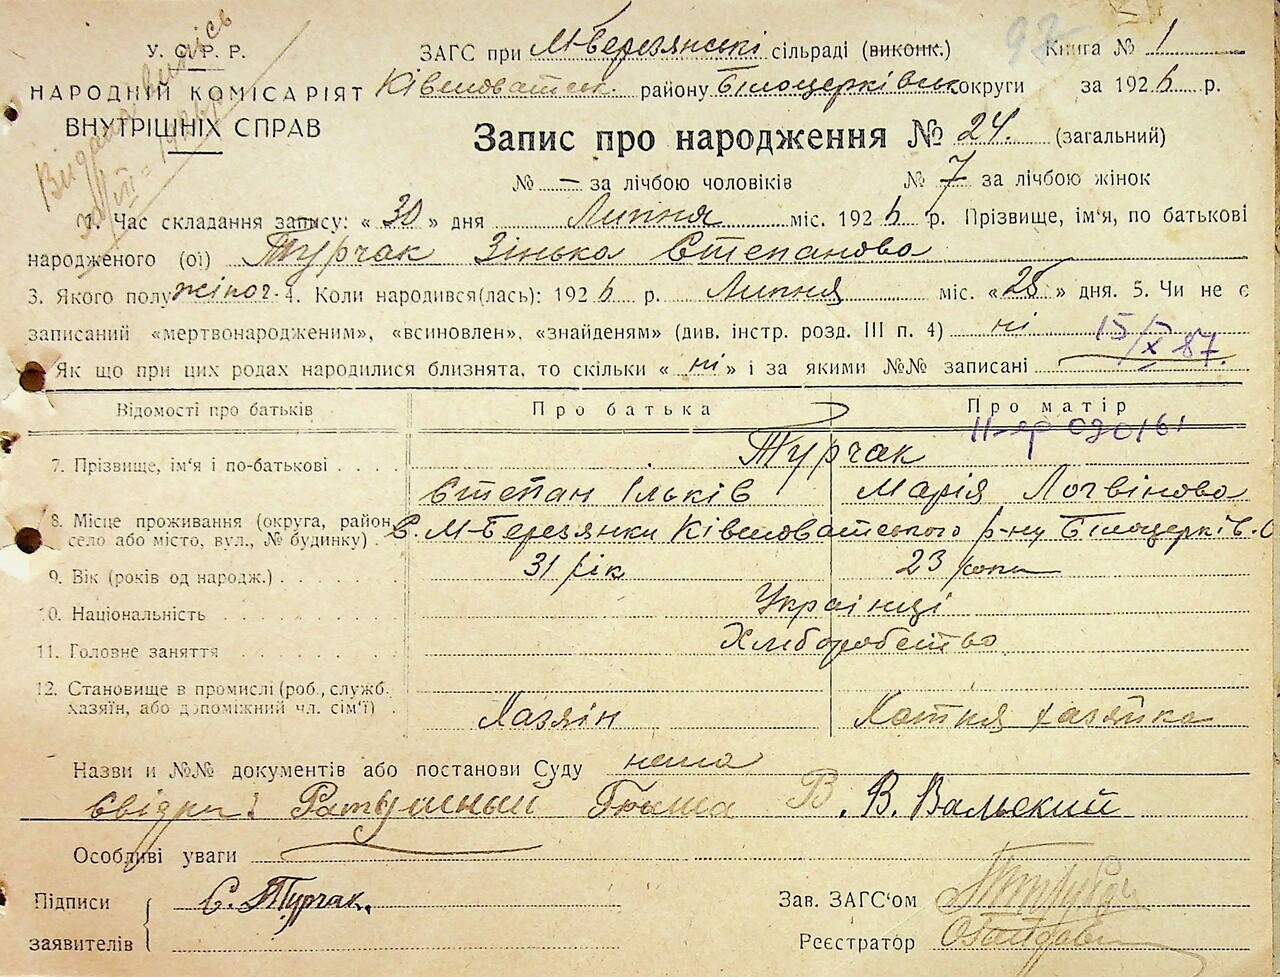 У. С. Р. Р.
НАРОДНІЙ КОМІСАРІЯТ
ВНУТРІШНІХ СПРАВ
ЗАГС при М-Березянські сільраді (виконк.) Книга № 1
району Білоцерківськ округи за 1926 р.
Запис про народження № 24. (загальний)
№ — за лічбою чоловіків № 7 за лічбою жінок
1. Час складання запису: « 30 » дня Липня міс. 1926 р. Прізвище, ім'я, по батькові
народженого (ої) Турчак Зінька Степанова
3. Якого полу жіноч. 4. Коли народився(лась): 1926 р. Липня міс. «28» дня. 5. Чи не є
записаний «мертвонародженим», «всиновлен», «знайденям» (див. інстр. розд. III п. 4) ні
15/X 87.
Як що при цих родах народилися близнята, то скільки « ні » і за якими №№ записані
Відомості про батьків Про батька Про матір
7. Прізвище, ім'я і по-батькові Турчак
Степан Ільків Марія Логвінова
8. Місце проживання (округа, район, село або місто, вул., № будинку) С. М-Березянки Ківшоватського р-ну Білоцерків. О
9. Вік (років од народж.) 31 рік 23 роки
10. Національність Українці
11. Головне заняття Хліборобство
12. Становище в промислі (роб., служб. хазяїн, або допоміжний чл. сім'ї) Хазяін Хатня хазяйка
Назви и №№ документів або постанови Суду нема
В. Вальский
Особливі уваги
Підписи
заявителів
С. Турчак.
Зав. ЗАГС'ом
Реєстратор